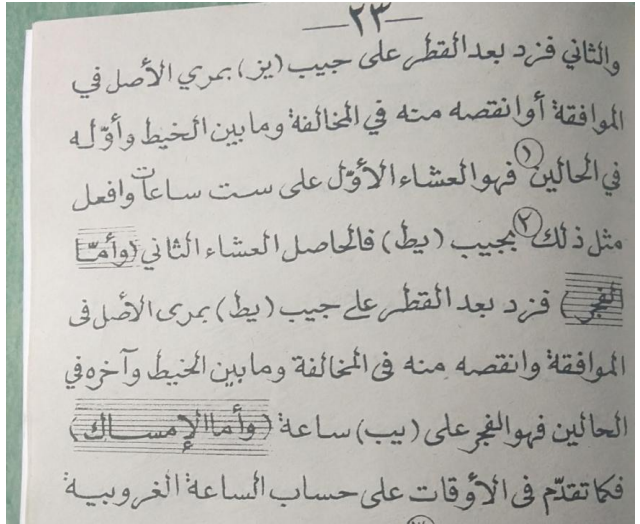 —٢٣—
والثاني فزد بعد القطر على جيب (يز) بمري الأصل في
الموافقة أو انقصه منه في المخالفة وما بين الخيط وأوّله
في الحالين (١) فهو العشاء الأوّل على ست ساعات وافعل
مثل ذلك (٢) بجيب (يط) فالحاصل العشاء الثاني (وأمّا
الفجر) فزد بعد القطر على جيب (يط) بمرى الأصل فى
الموافقة وانقصه منه فى المخالفة وما بين الخيط وآخره في
الحالين فهو الفجر على (يب) ساعة (وأما الإمساك)
فكما تقدّم فى الأوقات على حساب الساعة الغروبية